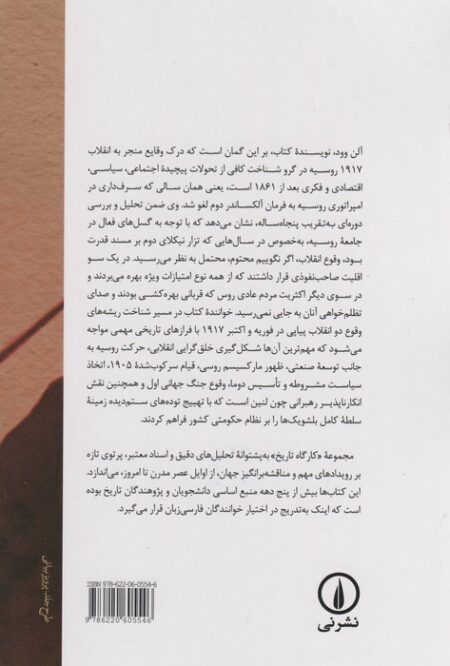 آلن وود، نویسندهٔ کتاب، بر این گمان است که درک وقایع منجر به انقلاب
۱۹۱۷ روسیه در گرو شناخت کافی از تحولات پیچیدهٔ اجتماعی، سیاسی،
اقتصادی و فکری بعد از ۱۸۶۱ است، یعنی همان سالی که سرف‌داری در
امپراتوری روسیه به فرمان آلکساندر دوم لغو شد. وی ضمن تحلیل و بررسی
دوره‌ای به‌تقریب پنجاه‌ساله، نشان می‌دهد که با توجه به گسل‌های فعال در
جامعهٔ روسیه، به‌خصوص در سال‌هایی که تزار نیکلای دوم بر مسند قدرت
بود، وقوع انقلاب، اگر نگوییم محتوم، محتمل به نظر می‌رسید. در یک سو
اقلیت صاحب‌نفوذی قرار داشتند که از همه نوع امتیازات ویژه بهره می‌بردند و
در سوی دیگر اکثریت مردم عادی روس که قربانی بهره‌کشی بودند و صدای
تظلم‌خواهی آنان به جایی نمی‌رسید. خوانندهٔ کتاب در مسیر شناخت ریشه‌های
وقوع دو انقلاب پیاپی در فوریه و اکتبر ۱۹۱۷ با فرازهای تاریخی مهمی مواجه
می‌شود که مهم‌ترین آن‌ها شکل‌گیری خلق‌گرایی انقلابی، حرکت روسیه به
جانب توسعهٔ صنعتی، ظهور مارکسیسم روسی، قیام سرکوب‌شدهٔ ۱۹۰۵، اتخاذ
سیاست مشروطه و تأسیس دوما، وقوع جنگ جهانی اول و همچنین نقش
انکارناپذیر رهبرانی چون لنین است که با تهییج توده‌های ستم‌دیده زمینهٔ
سلطهٔ کامل بلشویک‌ها را بر نظام حکومتی کشور فراهم کردند.
مجموعهٔ «کارگاه تاریخ» به‌پشتوانهٔ تحلیل‌های دقیق و اسناد معتبر، پرتوی تازه
بر رویدادهای مهم و مناقشه‌برانگیز جهان، از اوایل عصر مدرن تا امروز، می‌اندازد.
این کتاب‌ها بیش از پنج دهه منبع اساسی دانشجویان و پژوهندگان تاریخ بوده
است که اینک به‌تدریج در اختیار خوانندگان فارسی‌زبان قرار می‌گیرد.
نشرنی
ISBN 978-622-06-0554-6
9 786220 605546
طرح جلد: پرویز بیانی